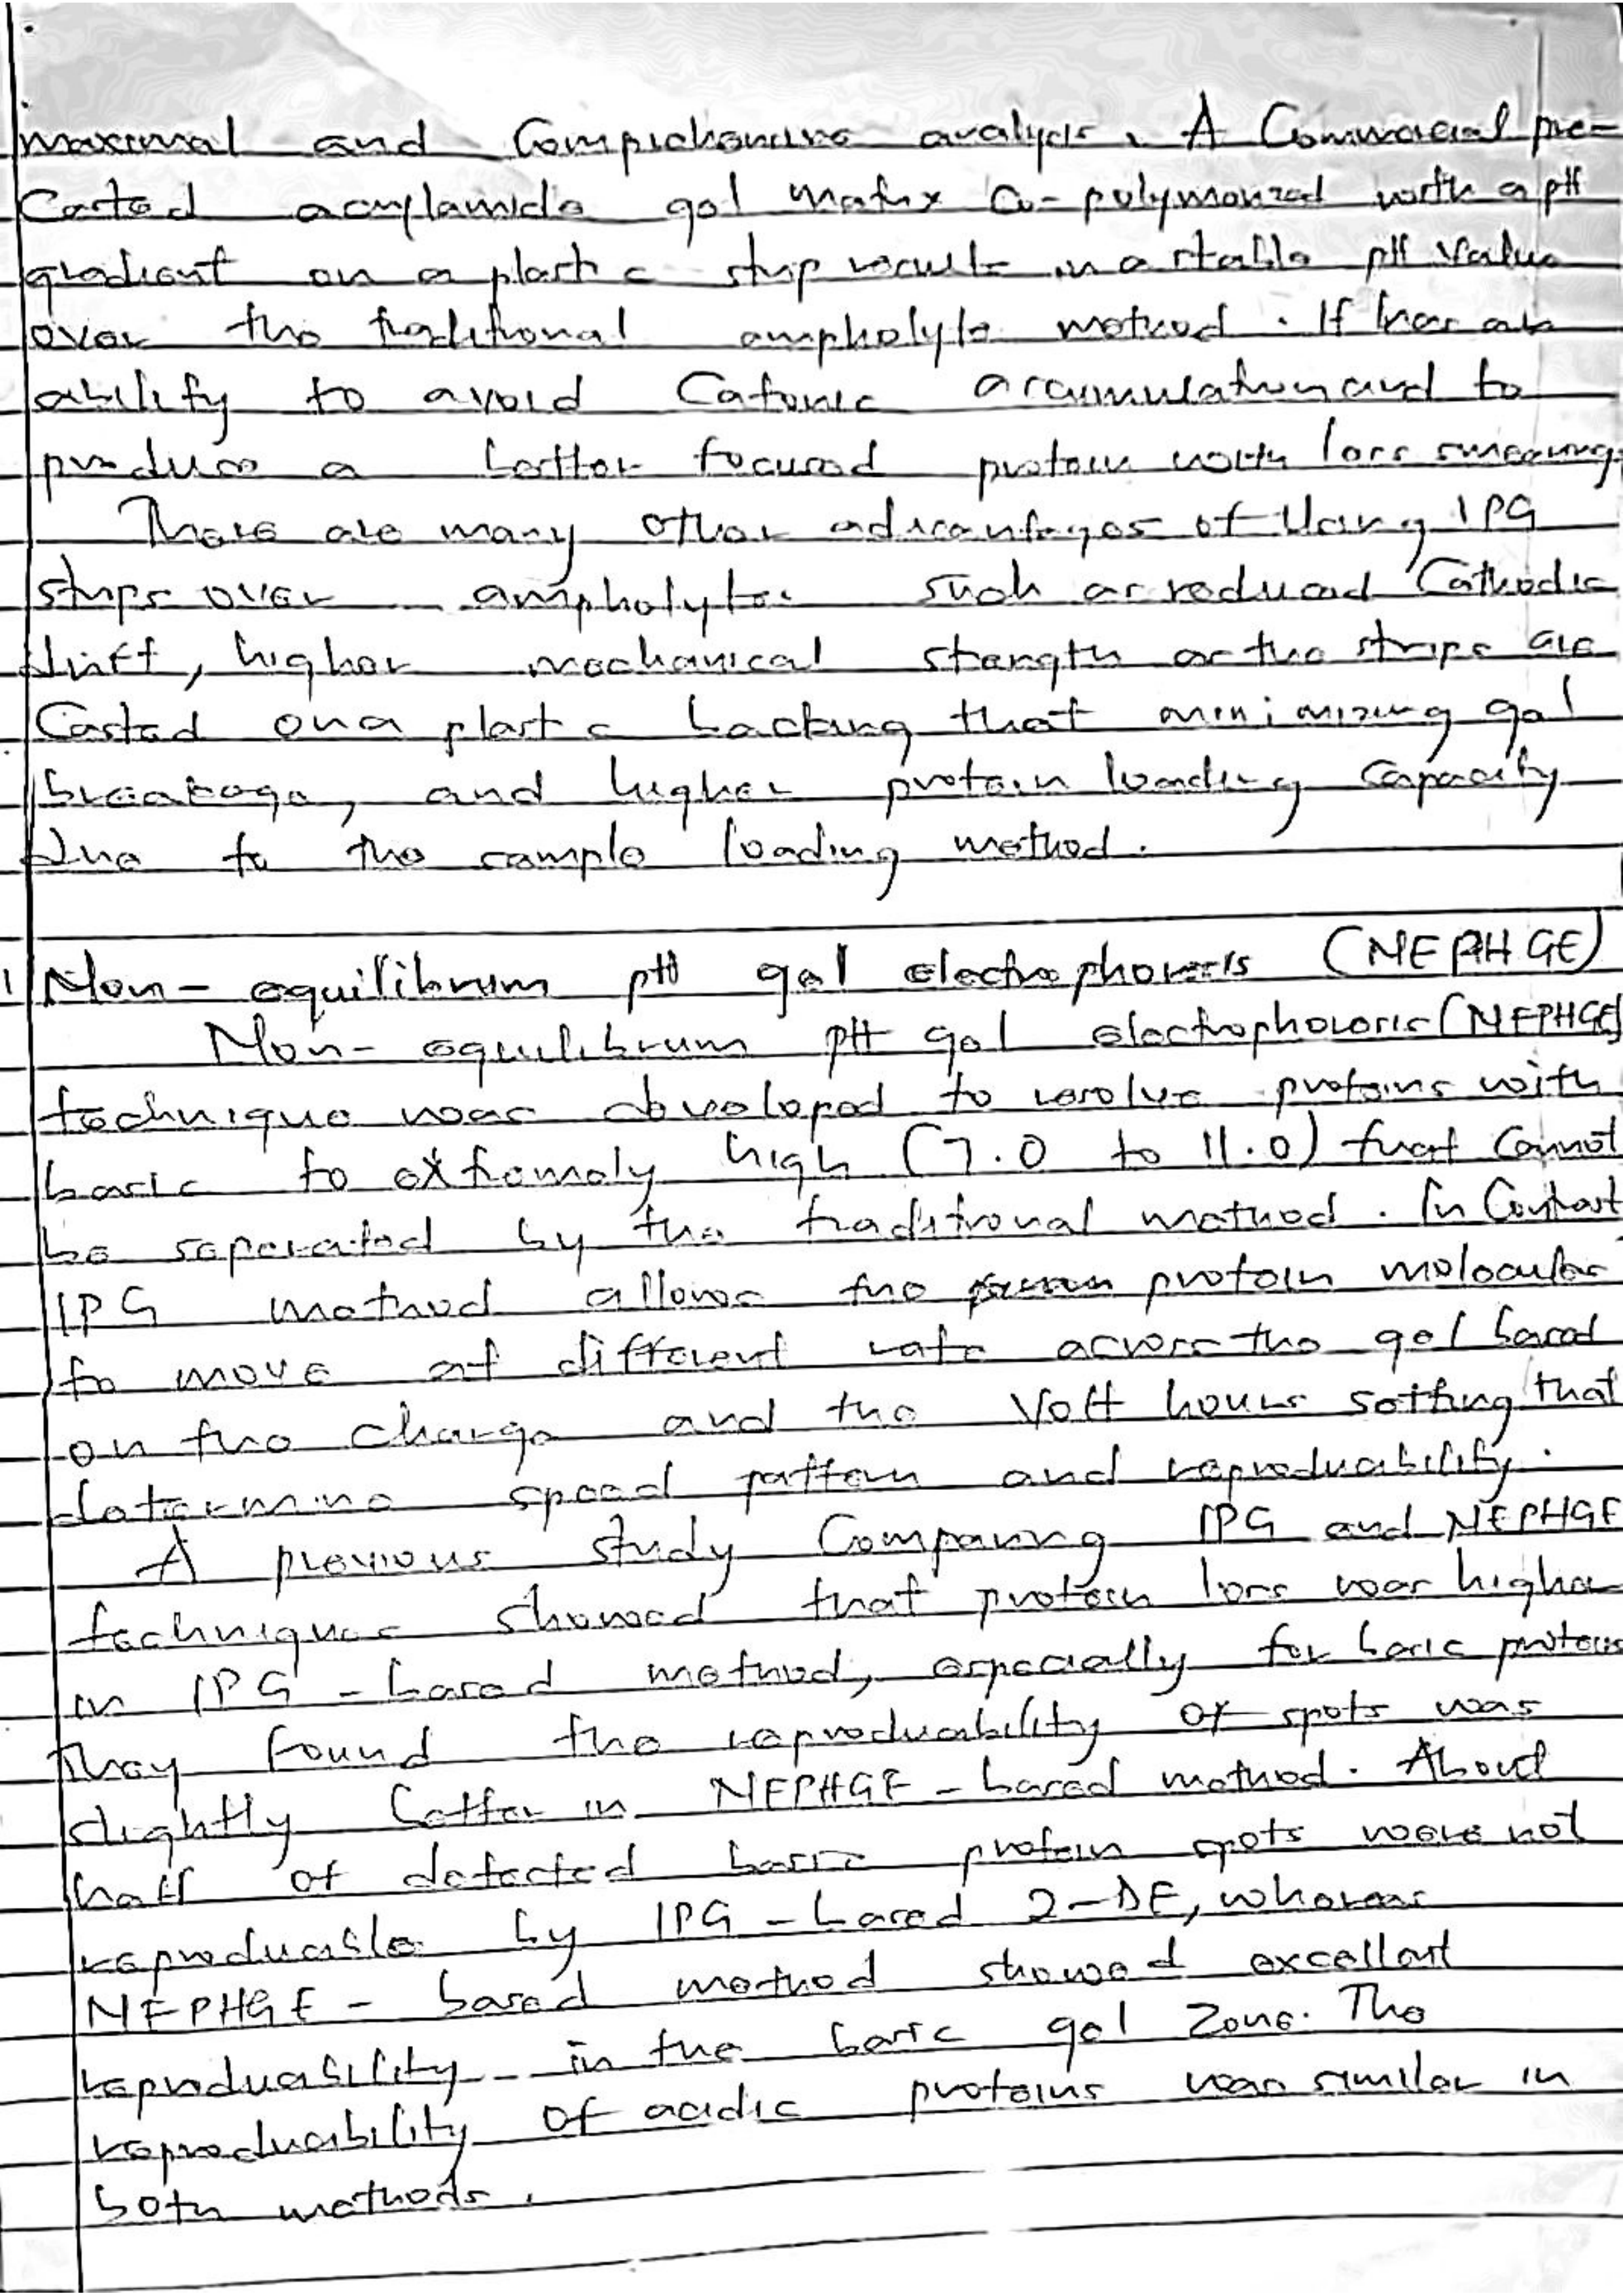 maximal and Comprehensive analysis. A Commercial pre-
Casted acrylamide gel matrix Co-polymerized with a pH
gradient on a plastic strip result in a stable pH value
over the traditional ampholyte method. It has an
ability to avoid Cationic accumulation and to
produce a better focused protein with less smearing.
There are many other advantages of Using IPG
strips over ampholytes such as reduced Cathodic
drift, higher mechanical strength as the strips are
Casted on a plastic backing that minimizing gel
breakage, and higher protein loading Capacity
due to the sample loading method.
1 Non-equilibrum pH gel electrophoresis (NEPHGE)
Non-equilibrum pH gel electrophoresis (NEPHGE)
technique was developed to resolve proteins with
basic to extremely high (7.0 to 11.0) that Cannot
be seperated by the traditional method. In Contrast
IPG method allows the protein molecular
to move at different rate across the gel based
on the charge and the Volt hours setting that
determine speed pattern and reproduability.
A previous study Comparing IPG and NEPHGE
techniques showed that protein loss was higher
in IPG-based method, especially for basic proteins
They found the reproduability of spots was
slightly better in NEPHGE-based method. About
half of detected basic protein spots were not
reproducable by IPG-based 2-DE, whereas
NEPHGE-based method showed excellent
reproduability in the basic gel zone. The
reproducibility of acidic proteins was similar in
both methods.